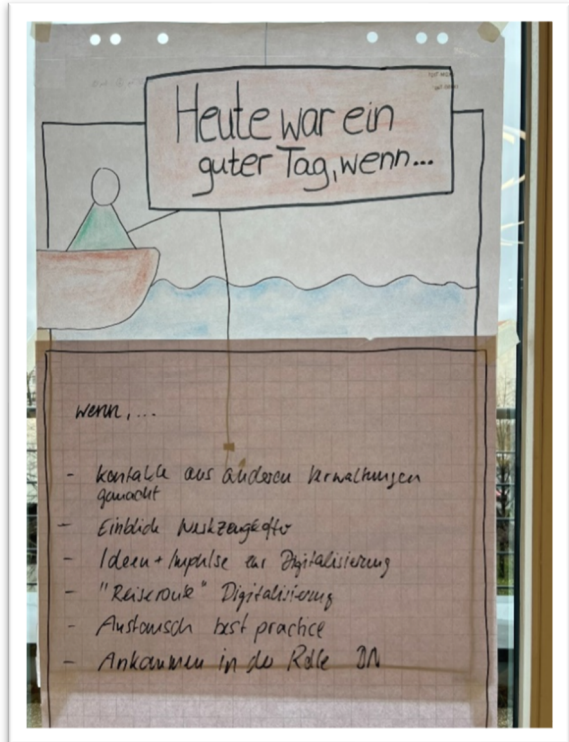 Heute war ein
guter Tag, wenn...
wenn, ...
- Kontakte aus anderen Verwaltungen
gemacht
- Einblick Werkzeugkoffer
- Ideen + Impulse zur Digitalisierung
- "Reiseroute" Digitalisierung
- Austausch best practice
- Ankommen in der Rolle